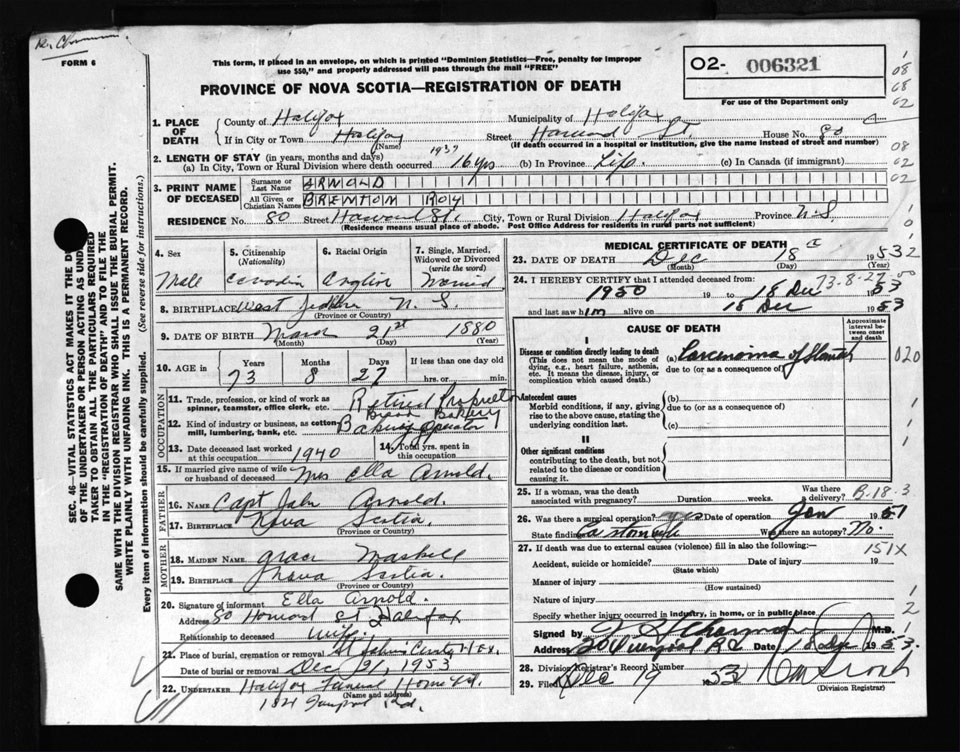 FORM 6
This form, if placed in an envelope, on which is printed "Dominion Statistics—Free, penalty for improper
use $50," and properly addressed will pass through the mail "FREE"
PROVINCE OF NOVA SCOTIA—REGISTRATION OF DEATH
O2- 006321
For use of the Department only
08
68
02
SEC. 46—VITAL STATISTICS ACT MAKES IT THE DU
OF THE UNDERTAKER OR PERSON ACTING AS UND
TAKER TO OBTAIN ALL THE PARTICULARS REQUIRED
IN THE "REGISTRATION OF DEATH" AND TO FILE THE
SAME WITH THE DIVISION REGISTRAR WHO SHALL ISSUE THE BURIAL PERMIT.
WRITE PLAINLY WITH UNFADING INK. THIS IS A PERMANENT RECORD.
Every item of information should be carefully supplied. (See reverse side for instructions.)
1. PLACE OF DEATH
County of Halifax Municipality of Halifax
If in City or Town Halifax Street Howard St. House No. 80
(Name) (If death occurred in a hospital or institution, give the name instead of street and number)
08
02
02
2. LENGTH OF STAY (in years, months and days) 1937
(a) In City, Town or Rural Division where death occurred 16 yrs (b) In Province Life. (c) In Canada (if immigrant)
3. PRINT NAME OF DECEASED
Surname or Last Name ARNOLD
All Given or Christian Names BRENTON ROY
RESIDENCE No. 80 Street Howard St. City, Town or Rural Division Halifax Province N.S.
(Residence means usual place of abode. Post Office Address for residents in rural parts not sufficient)
4. Sex Male
5. Citizenship (Nationality) Canadian
6. Racial Origin English
7. Single, Married, Widowed or Divorced (write the word) Married
8. BIRTHPLACE West N.S.
(Province or Country)
9. DATE OF BIRTH March 21st 1880
(Month) (Day) (Year)
10. AGE in
Years Months Days If less than one day old
73 8 27 hrs. or min.
OCCUPATION
11. Trade, profession, or kind of work as spinner, teamster, office clerk, etc. Retired Proprietor
Bakery
12. Kind of industry or business, as cotton mill, lumbering, bank, etc. Bakery Operator
13. Date deceased last worked at this occupation 1940
14. Total yrs. spent in this occupation
15. If married give name of wife or husband of deceased Mrs Ella Arnold.
FATHER
16. NAME Capt John Arnold.
17. BIRTHPLACE Nova Scotia.
(Province or Country)
MOTHER
18. MAIDEN NAME Grace
19. BIRTHPLACE Nova Scotia.
(Province or Country)
20. Signature of informant Ella Arnold.
Address 80 Howard St Halifax
Relationship to deceased wife
21. Place of burial, cremation or removal St John's
Date of burial or removal Dec 21, 1953
22. UNDERTAKER Halifax Funeral Home
(Name and address)
184 Rd.
MEDICAL CERTIFICATE OF DEATH
23. DATE OF DEATH Dec 18 1953
(Month) (Day) (Year)
73-8-27
24. I HEREBY CERTIFY that I attended deceased from:
1950 19 to 18 Dec 1953
and last saw him alive on 18 Dec 1953
CAUSE OF DEATH
Approximate interval between onset and death
I
Disease or condition directly leading to death
(This does not mean the mode of dying, e.g., heart failure, asthenia, etc. It means the disease, injury, or complication which caused death.)
(a) Carcinoma of Stomach
due to (or as a consequence of)
020
Antecedent causes
Morbid conditions, if any, giving rise to the above cause, stating the underlying condition last.
(b)
due to (or as a consequence of)
(c)
II
Other significant conditions
contributing to the death, but not related to the disease or condition causing it.
25. If a woman, was the death associated with pregnancy? Duration weeks. Was there a delivery? B-18-3
26. Was there a surgical operation? yes Date of operation Jan 1951
State findings Was there an autopsy? No.
27. If death was due to external causes (violence) fill in also the following:—
151X
Accident, suicide or homicide? Date of injury 19
(State which)
Manner of injury
(How sustained)
Nature of injury
Specify whether injury occurred in industry, in home, or in public place.
Signed by M.D.
Address Date 18 Dec 1953.
28. Division Registrar's Record Number
29. Filed Dec 19 1953
(Division Registrar)